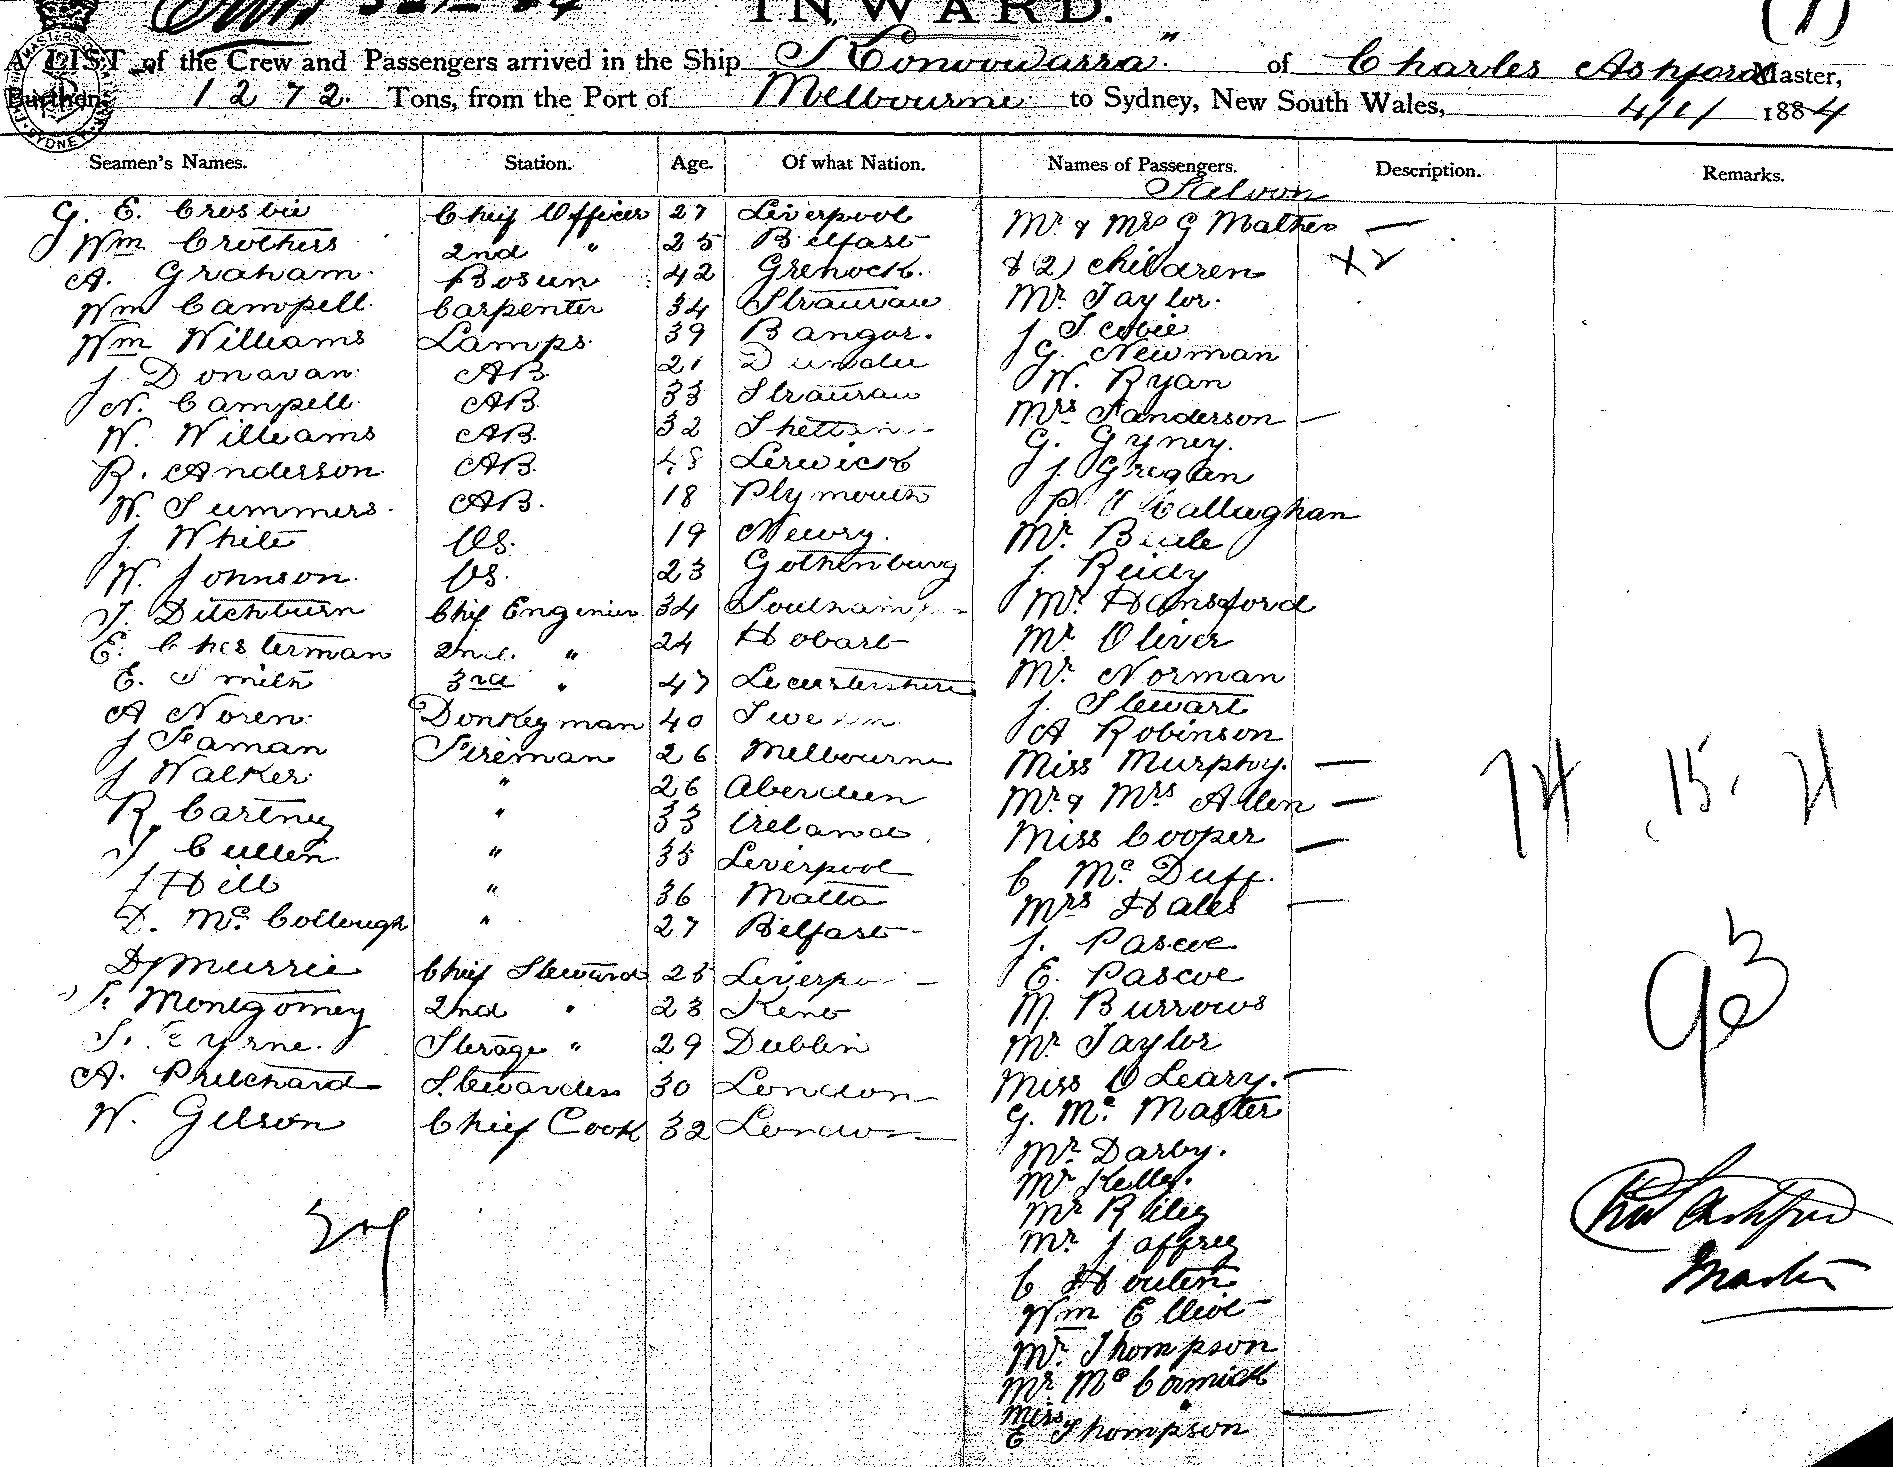 INWARD.
(1)
A LIST of the Crew and Passengers arrived in the Ship S Konoowarra" of Charles Ashford Master,
Burthen 1272. Tons, from the Port of Melbourne to Sydney, New South Wales, 4/1/ 1884
Seamen's Names. Station. Age. Of what Nation. Names of Passengers. Description. Remarks.
Saloon
G. E. Crosbie Chief Officer 27 Liverpool Mr & Mrs G Mather —
Wm Crothers 2nd " 25 Belfast & (2) children x2
A. Graham. Bosun 42 Grenock. Mr. Taylor.
Wm Campell Carpenter 34 Stranraw J Scobie
Wm Williams Lamps. 39 Bangor. G. Newman
J. Donavan. AB 21 Dundee W. Ryan
N. Campell AB. 33 Stranraw Mrs Sanderson —
W. Williams AB. 32 G. Gyney.
R. Anderson AB. 48 Lerwick J. Gregan
W. Summers. AB. 18 Plymouth P. O Callaghan
J. White OS. 19 Newry. Mr. Beale
W. Johnson. OS. 23 Gothenburg J. Reidy
T. Ditchburn Chif Enginier 34 Mr. Hansford
E. Chesterman 2nd. " 24 Hobart Mr. Oliver
E. Smith 3rd " 47 Leicestershire Mr. Norman
A Noren. Donkeyman 40 Sweden J. Stewart
J Seaman Fireman 26 Melbourne A Robinson
J Walker " 26 Aberdeen Miss Murphy. —
R. Cartney " 33 Ireland Mr. & Mrs Allen —
T Cullen " 35 Liverpool Miss Cooper —
J Hill " 36 Malta C Mc Duff.
D. Mc Collough " 27 Belfast Mrs Hales —
D Murrie Chief Steward 25 Liverpo J. Pascoe
Montgomey 2nd " 23 Kent E. Pascoe
yrne. Sterage " 29 Dublin M. Burrows
A. Pritchard Stewardess 30 London Mr Taylor
W. Gilson Chief Cook 32 London Miss O Leary. —
G. Mc Master
Mr. Darby.
Mr Kelly.
Mr Riley
Mr. Jaffrey
C Houten
Wm Elliot
Mr. Thompson
Mr Mc Cormick
Miss E Thompson —
74 15. 21
93
27
Chas Ashford
Master